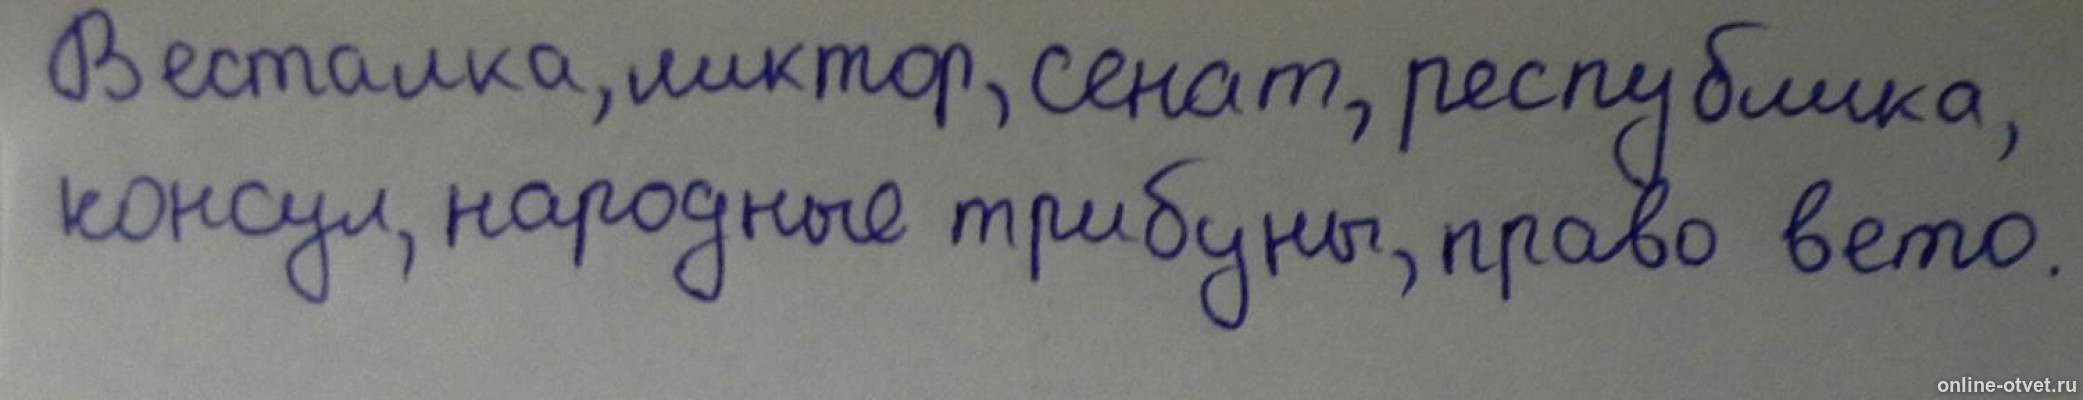 Весталка, ликтор, сенат, республика,
консул, народные трибуны, право вето.
online-otvet.ru